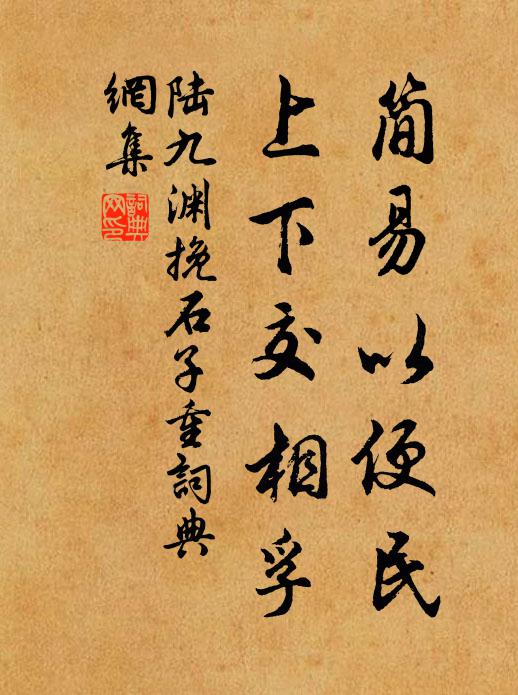 简易以便民
上下交相孚
陆九渊挽石子重詞典
網集
詞典
网印